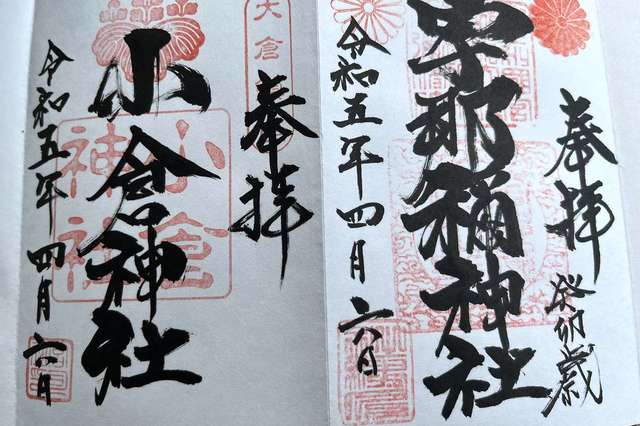 奉拝
癸卯歳
宇那禰神社
令和五年四月六日
大倉
奉拝
小倉神社
小倉
神社
令和五年四月六日